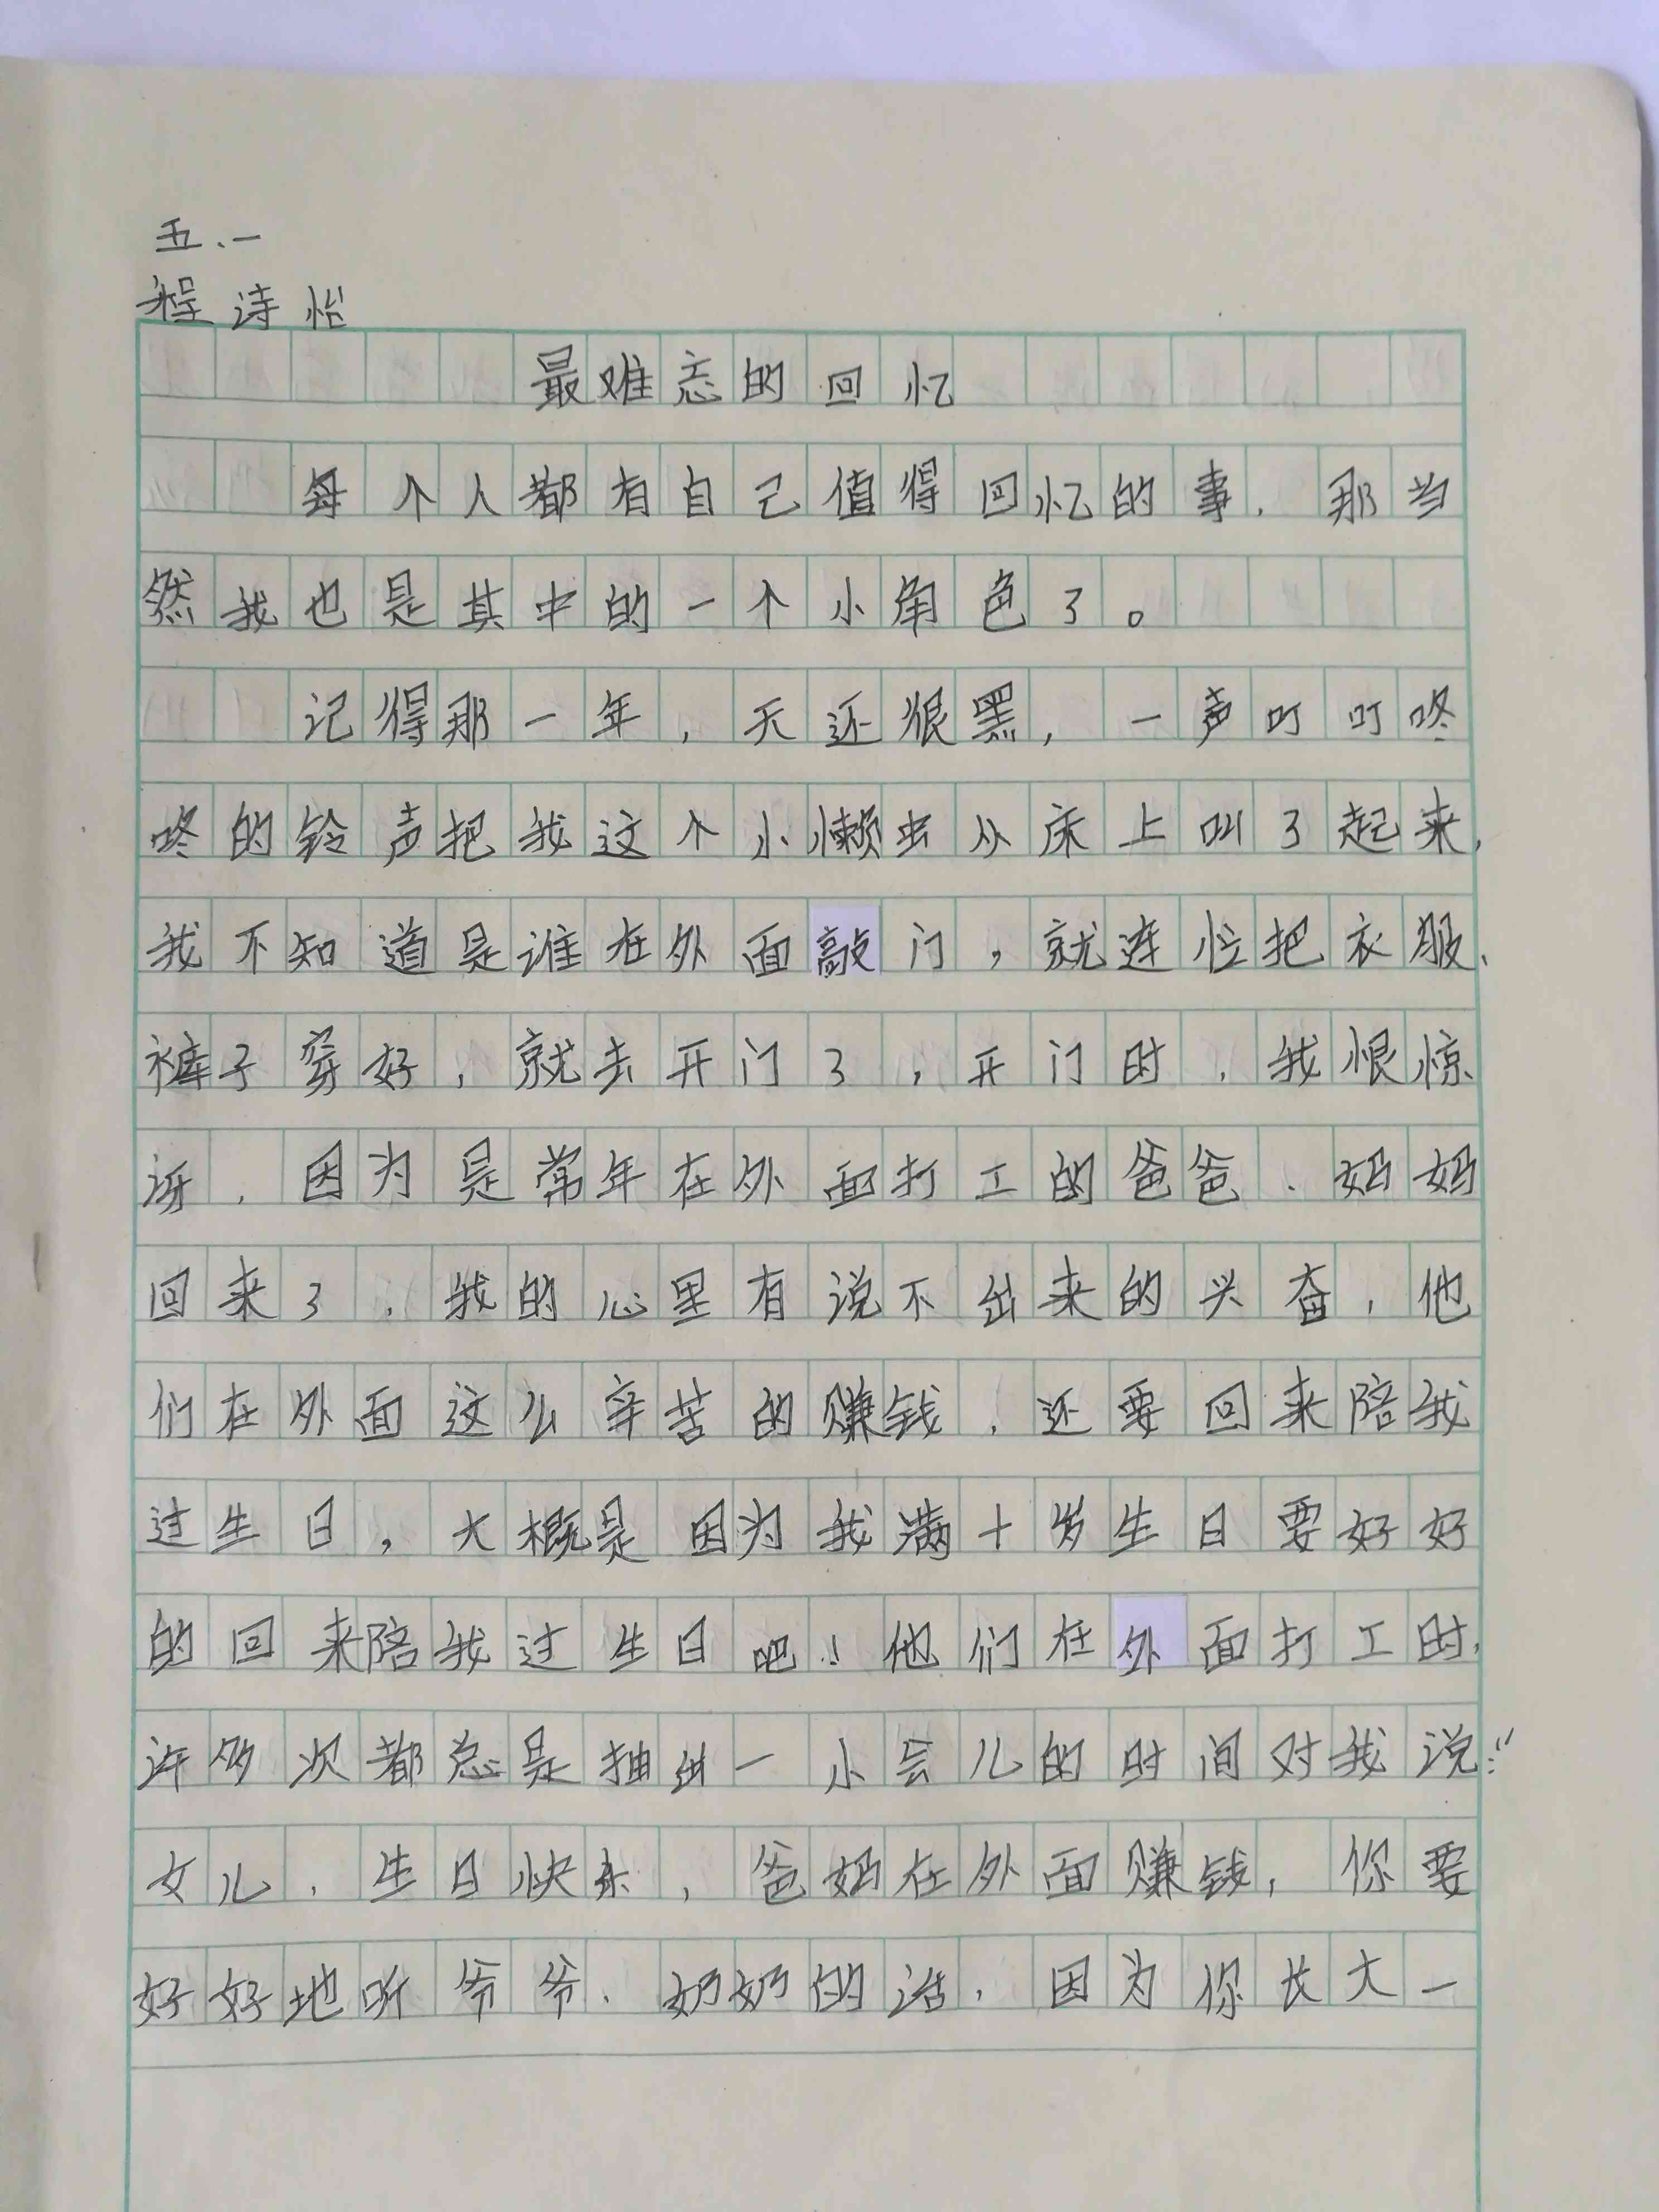 五、一
程诗怡
最难忘的回忆
每个人都有自己值得回忆的事，那当
然我也是其中的一个小角色了。
记得那一年，天还很黑，一声叮叮咚
咚的铃声把我这个小懒虫从床上叫了起来，
我不知道是谁在外面敲门，就连忙把衣服、
裤子穿好，就去开门了，开门时，我恨惊
讶，因为是常年在外面打工的爸爸、妈妈
回来了，我的心里有说不出来的兴奋，他
们在外面这么辛苦的赚钱，还要回来陪我
过生日，大概是因为我满十岁生日要好好
的回来陪我过生日吧！他们在外面打工时，
许多次都总是抽出一小会儿的时间对我说：“
女儿，生日快乐，爸妈在外面赚钱，你要
好好地听爷爷、奶奶的话，因为你长大一